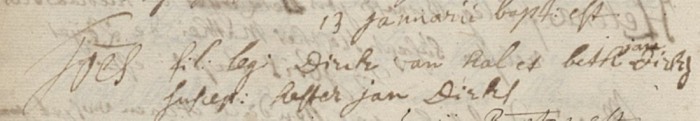 13 januarii bapt: est
fil: legi Dirck van Hal et betk jan Dirks
suscep: Hester jan Dirks